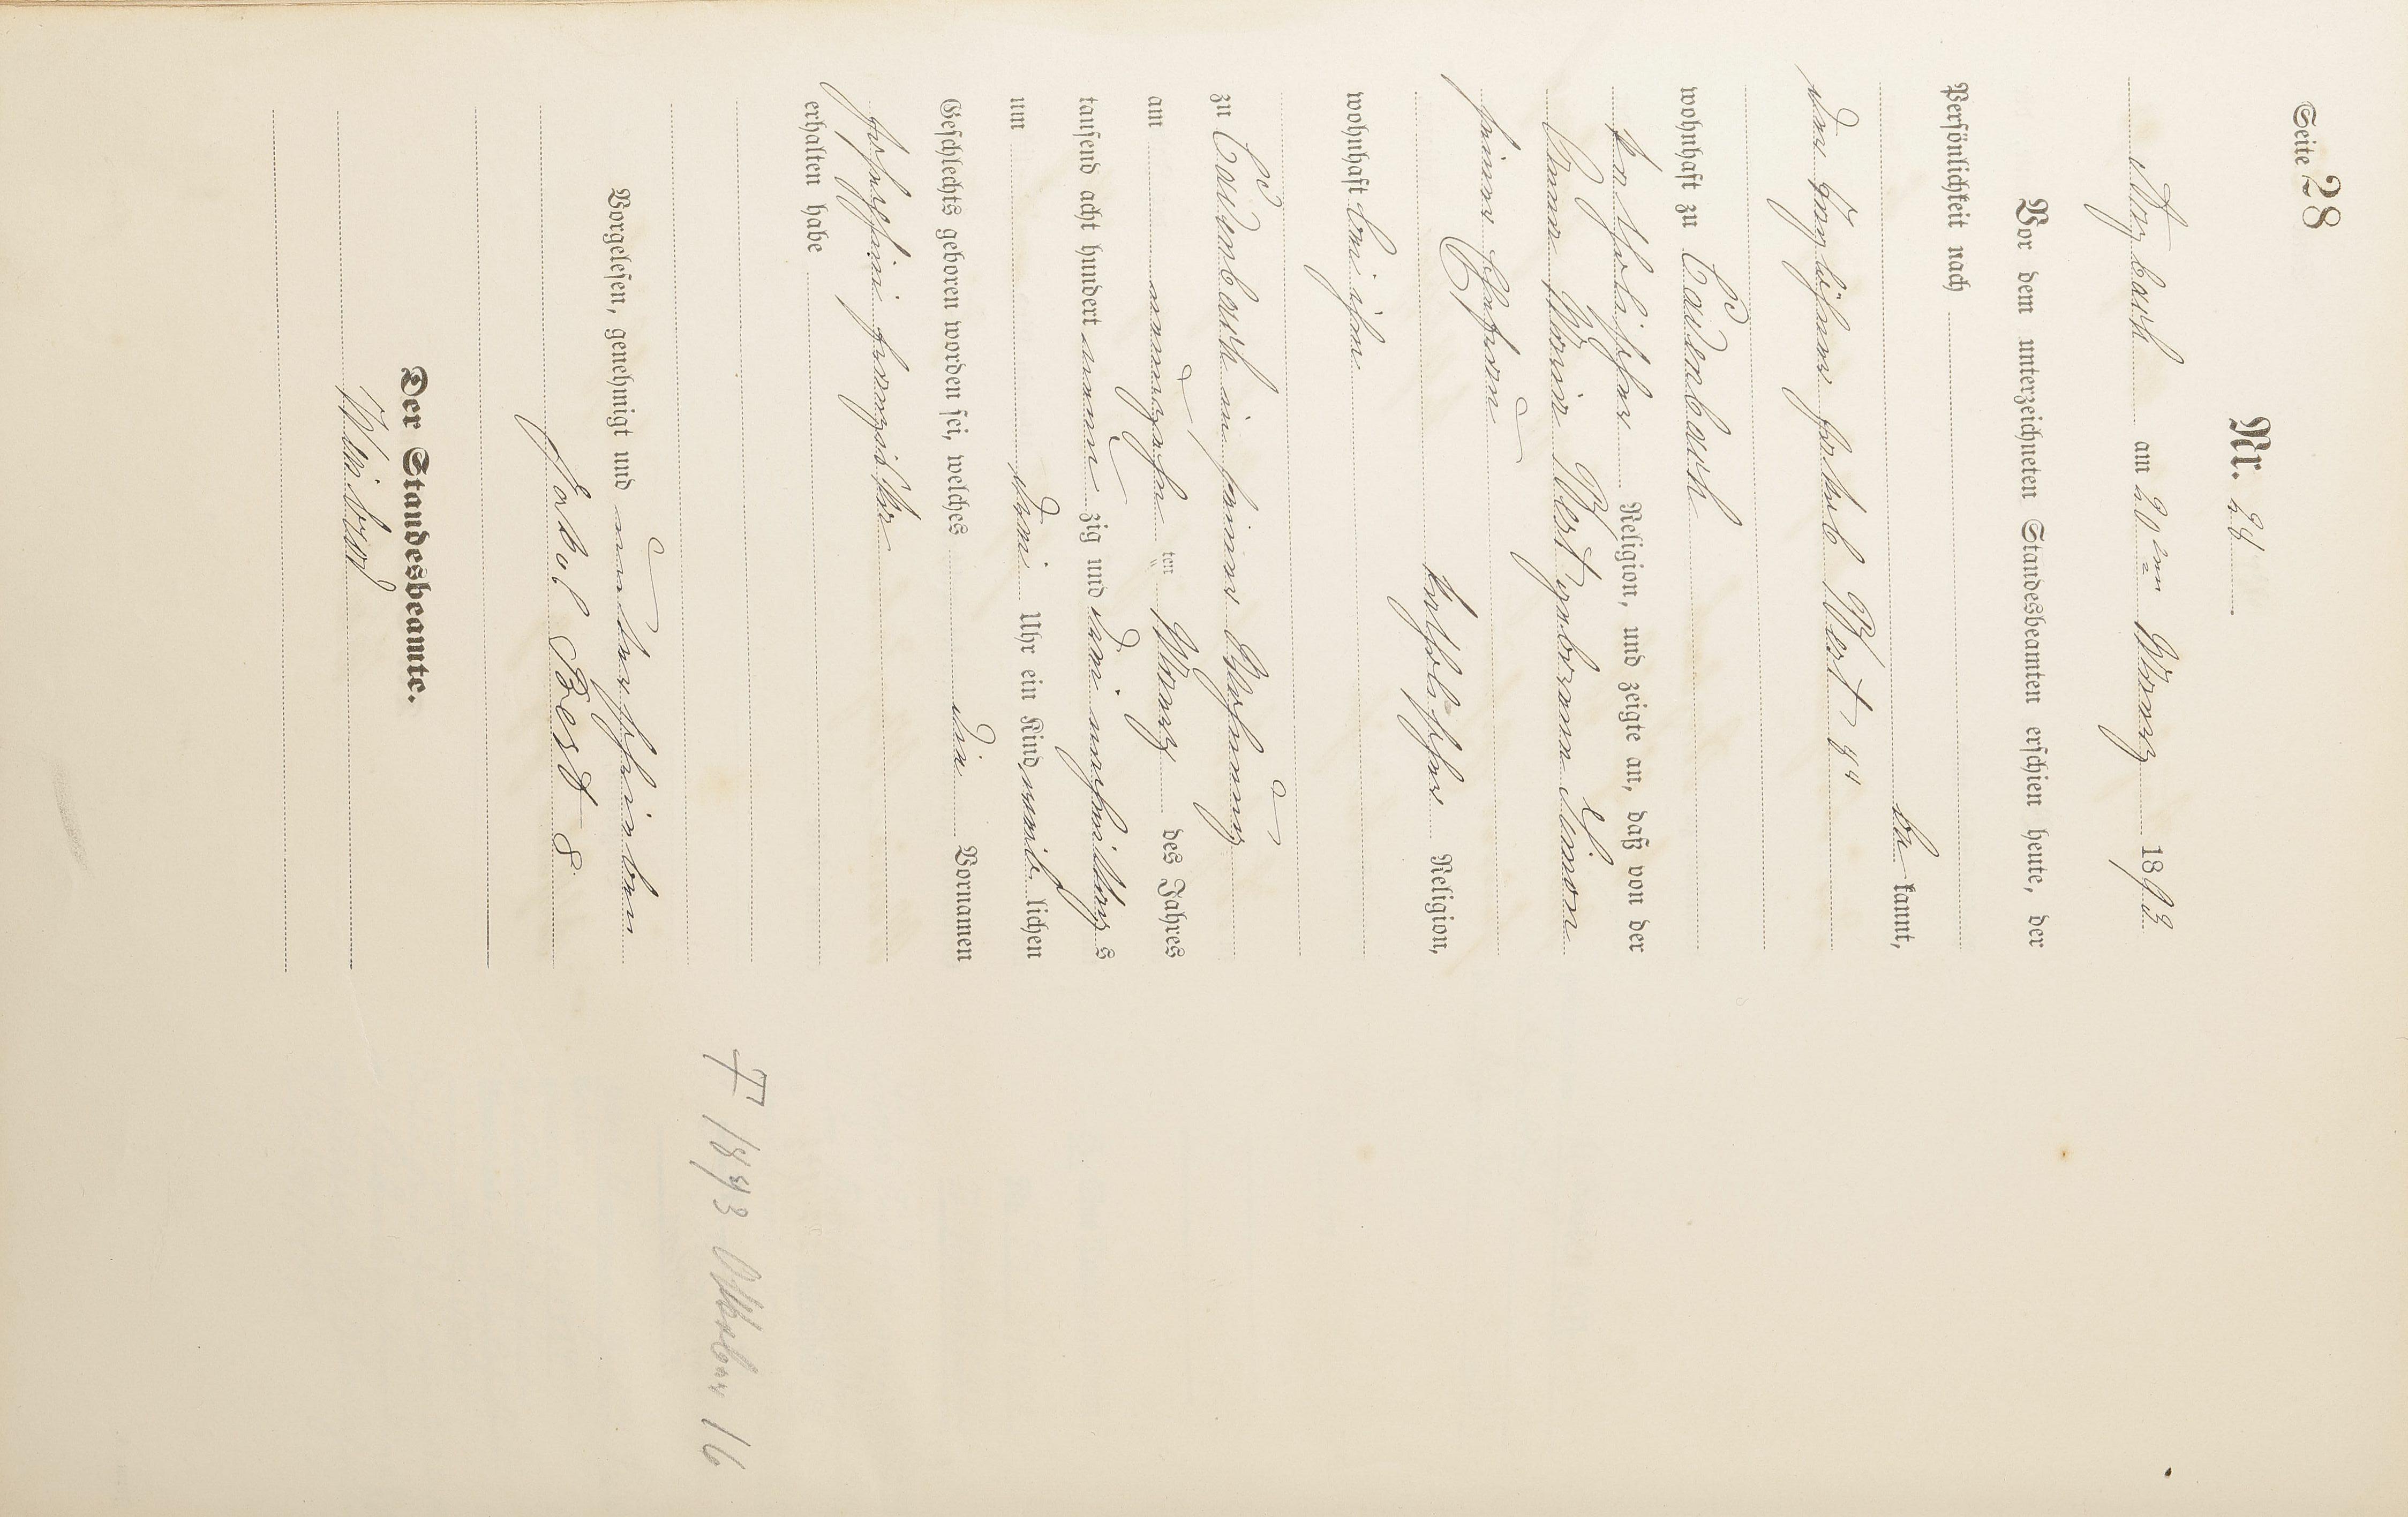 Seite 28
Nr. 24
Asbach am 20ten März 1893
Vor dem unterzeichneten Standesbeamten erschien heute, der
Persönlichkeit nach
be kannt,
der Taglöhner Jakob Best 8ter
wohnhaft zu Laudenbach
katholischer Religion, und zeigte an, daß von der
Anna Maria Best geborene Simon
seiner Ehefrau
katholischer Religion,
wohnhaft bei ihm
zu Laudenbach in seiner Wohnung
am neunzehn ten März des Jahres
tausend acht hundert neun zig und drei nachmittags
um drei Uhr ein Kind weib lichen
Geschlechts geboren worden sei, welches die Vornamen
Franziska
erhalten habe
Vorgelesen, genehmigt und unterschrieben
Jakob Best 8
Der Standesbeamte.
† 1893 Oktober 16